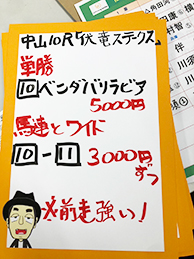 中山10R「伏竜ステークス」
単勝
10ベンダバリラビア
5000円
馬連とワイド
10-11 3000円
ずつ
※前走強い!